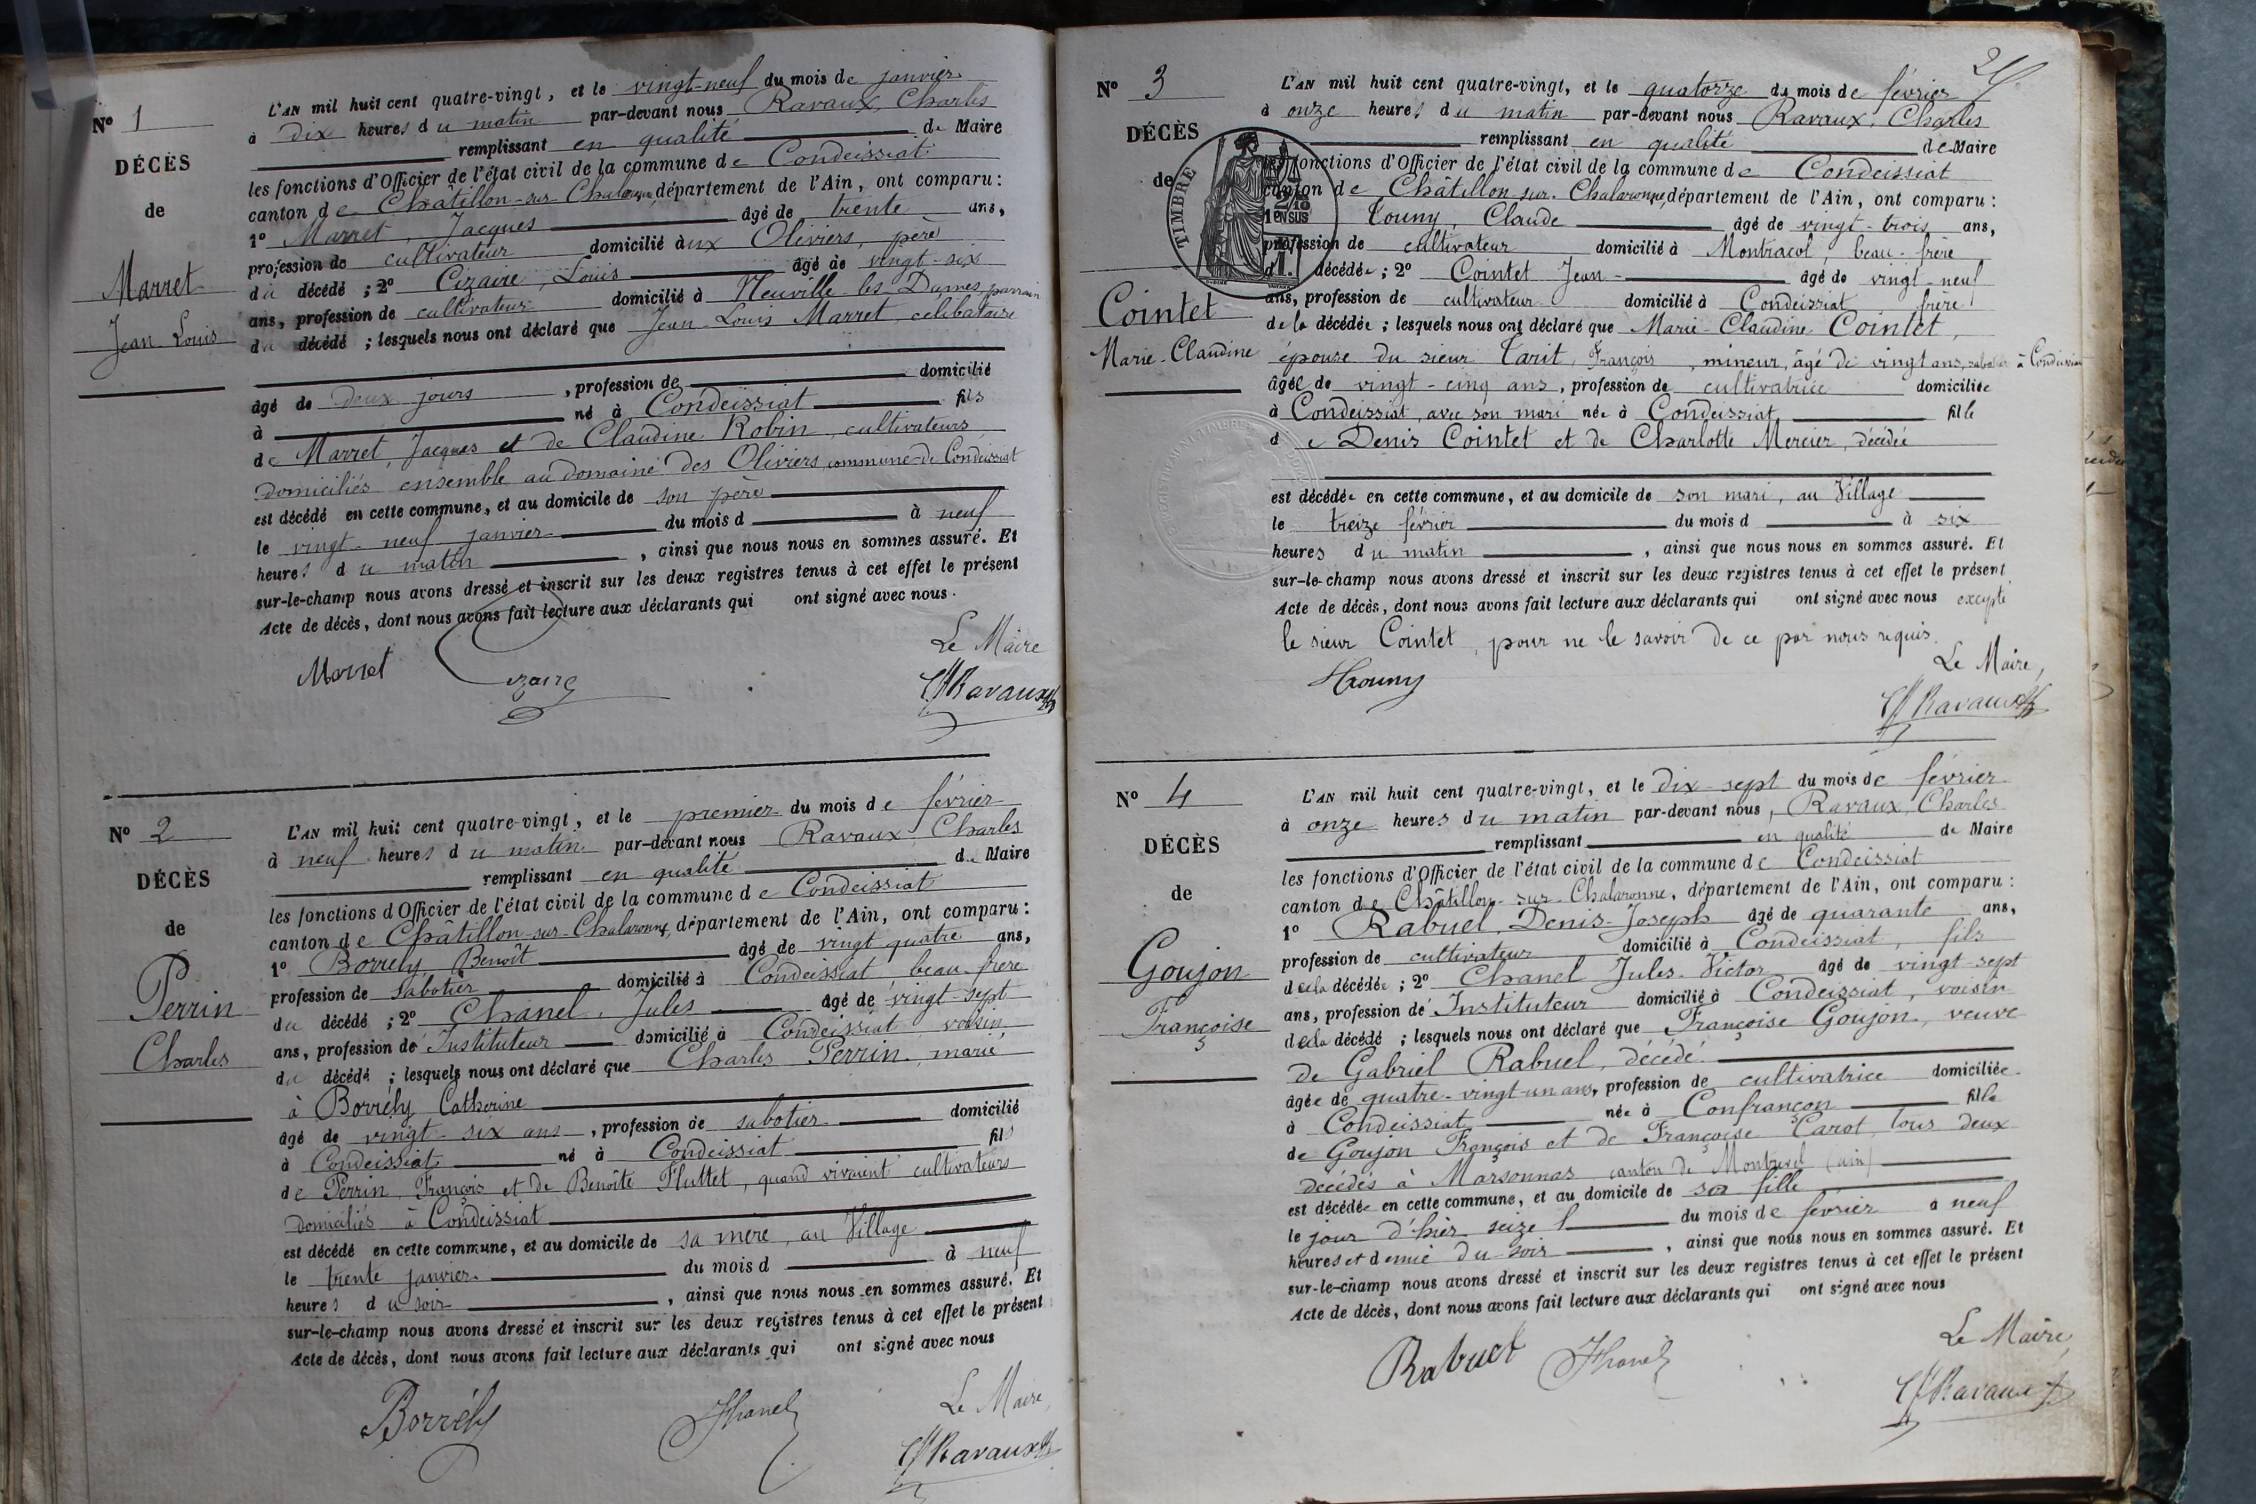 Nº 1
DÉCÈS
de
Marret
Jean Louis
L'AN mil huit cent quatre-vingt, et le vingt-neuf du mois de janvier
à dix heures du matin par-devant nous Ravaux, Charles
remplissant en qualité de Maire
les fonctions d'Officier de l'état civil de la commune de Condeissiat
canton de Châtillon-sur-Chalaronne, département de l'Ain, ont comparu :
1º Marret, Jacques âgé de trente ans,
profession de cultivateur domicilié aux Oliviers, père
du décédé ; 2º Cizaire, Louis âgé de vingt-six
ans, profession de cultivateur domicilié à Neuville-les-Dames, parrain
du décédé ; lesquels nous ont déclaré que Jean-Louis Marret, célibataire
âgé de deux jours, profession de domicilié
à né à Condeissiat fils
de Marret, Jacques et de Claudine Robin, cultivateurs
domiciliés ensemble au domaine des Oliviers, commune de Condeissiat
est décédé en cette commune, et au domicile de son père
le vingt-neuf janvier du mois d à neuf
heures du matin, ainsi que nous nous en sommes assuré. Et
sur-le-champ nous avons dressé et inscrit sur les deux registres tenus à cet effet le présent
Acte de décès, dont nous avons fait lecture aux déclarants qui ont signé avec nous.
Le Maire
Marret Cizaire Ch Ravaux
Nº 2
DÉCÈS
de
Perrin
Charles
L'AN mil huit cent quatre-vingt, et le premier du mois de février
à neuf heures du matin par-devant nous Ravaux Charles
remplissant en qualité de Maire
les fonctions d'Officier de l'état civil de la commune de Condeissiat
canton de Châtillon-sur-Chalaronne, département de l'Ain, ont comparu :
1º Borrély Benoît âgé de vingt quatre ans,
profession de sabotier domicilié à Condeissiat beau-frère
du décédé ; 2º Chanel, Jules âgé de vingt-sept
ans, profession de Instituteur domicilié à Condeissiat voisin
du décédé ; lesquels nous ont déclaré que Charles Perrin, marié
à Borrély Catherine
âgé de vingt-six ans, profession de sabotier domicilié
à Condeissiat né à Condeissiat fils
de Perrin, François et de Benoîte Fluttet, quand vivaient cultivateurs
domiciliés à Condeissiat
est décédé en cette commune, et au domicile de sa mère, au Village
le trente janvier du mois d à neuf
heures du soir, ainsi que nous nous en sommes assuré. Et
sur-le-champ nous avons dressé et inscrit sur les deux registres tenus à cet effet le présent
Acte de décès, dont nous avons fait lecture aux déclarants qui ont signé avec nous
Le Maire,
Borrély JChanel Ch Ravaux
Nº 3
DÉCÈS
de
Cointet
Marie-Claudine
TIMBRE
L'AN mil huit cent quatre-vingt, et le quatorze du mois de février
à onze heures du matin par-devant nous Ravaux, Charles
remplissant en qualité de Maire
les fonctions d'Officier de l'état civil de la commune de Condeissiat
canton de Châtillon-sur-Chalaronne, département de l'Ain, ont comparu :
1º Touny, Claude âgé de vingt-trois ans,
profession de cultivateur domicilié à Montracol, beau-frère
d décédée ; 2º Cointet Jean âgé de vingt-neuf
ans, profession de cultivateur domicilié à Condeissiat frère
de la décédée ; lesquels nous ont déclaré que Marie-Claudine Cointet,
épouse du sieur Tarit, François, mineur, âgé de vingt ans, sabotier à Condeissiat
âgée de vingt-cinq ans, profession de cultivatrice domiciliée
à Condeissiat, avec son mari née à Condeissiat fille
de Denis Cointet et de Charlotte Mercier, décédée
est décédée en cette commune, et au domicile de son mari, au Village
le treize février du mois d à six
heures du matin, ainsi que nous nous en sommes assuré. Et
sur-le-champ nous avons dressé et inscrit sur les deux registres tenus à cet effet le présent
Acte de décès, dont nous avons fait lecture aux déclarants qui ont signé avec nous excepté
le sieur Cointet, pour ne le savoir de ce par nous requis.
Le Maire,
Touny Ch Ravaux
Nº 4
DÉCÈS
de
Goujon
Françoise
L'AN mil huit cent quatre-vingt, et le dix sept du mois de février
à onze heures du matin par-devant nous, Ravaux, Charles
remplissant en qualité de Maire
les fonctions d'Officier de l'état civil de la commune de Condeissiat
canton de Châtillon-sur-Chalaronne, département de l'Ain, ont comparu :
1º Rabuel, Denis-Joseph âgé de quarante ans,
profession de cultivateur domicilié à Condeissiat, fils
de la décédée ; 2º Chanel Jules-Victor âgé de vingt-sept
ans, profession de Instituteur domicilié à Condeissiat, voisin
de la décédé ; lesquels nous ont déclaré que Françoise Goujon, veuve
de Gabriel Rabuel, décédé.
âgée de quatre-vingt-un ans, profession de cultivatrice domiciliée
à Condeissiat née à Confrançon fille
de Goujon François et de Françoise Carot, tous deux
décédés à Marsonnas, canton de Montrevel (Ain)
est décédée en cette commune, et au domicile de sa fille
le jour d'hier seize f du mois de février à neuf
heures et demie du soir, ainsi que nous nous en sommes assuré. Et
sur-le-champ nous avons dressé et inscrit sur les deux registres tenus à cet effet le présent
Acte de décès, dont nous avons fait lecture aux déclarants qui ont signé avec nous
Le Maire,
Rabuel JChanel Ch Ravaux